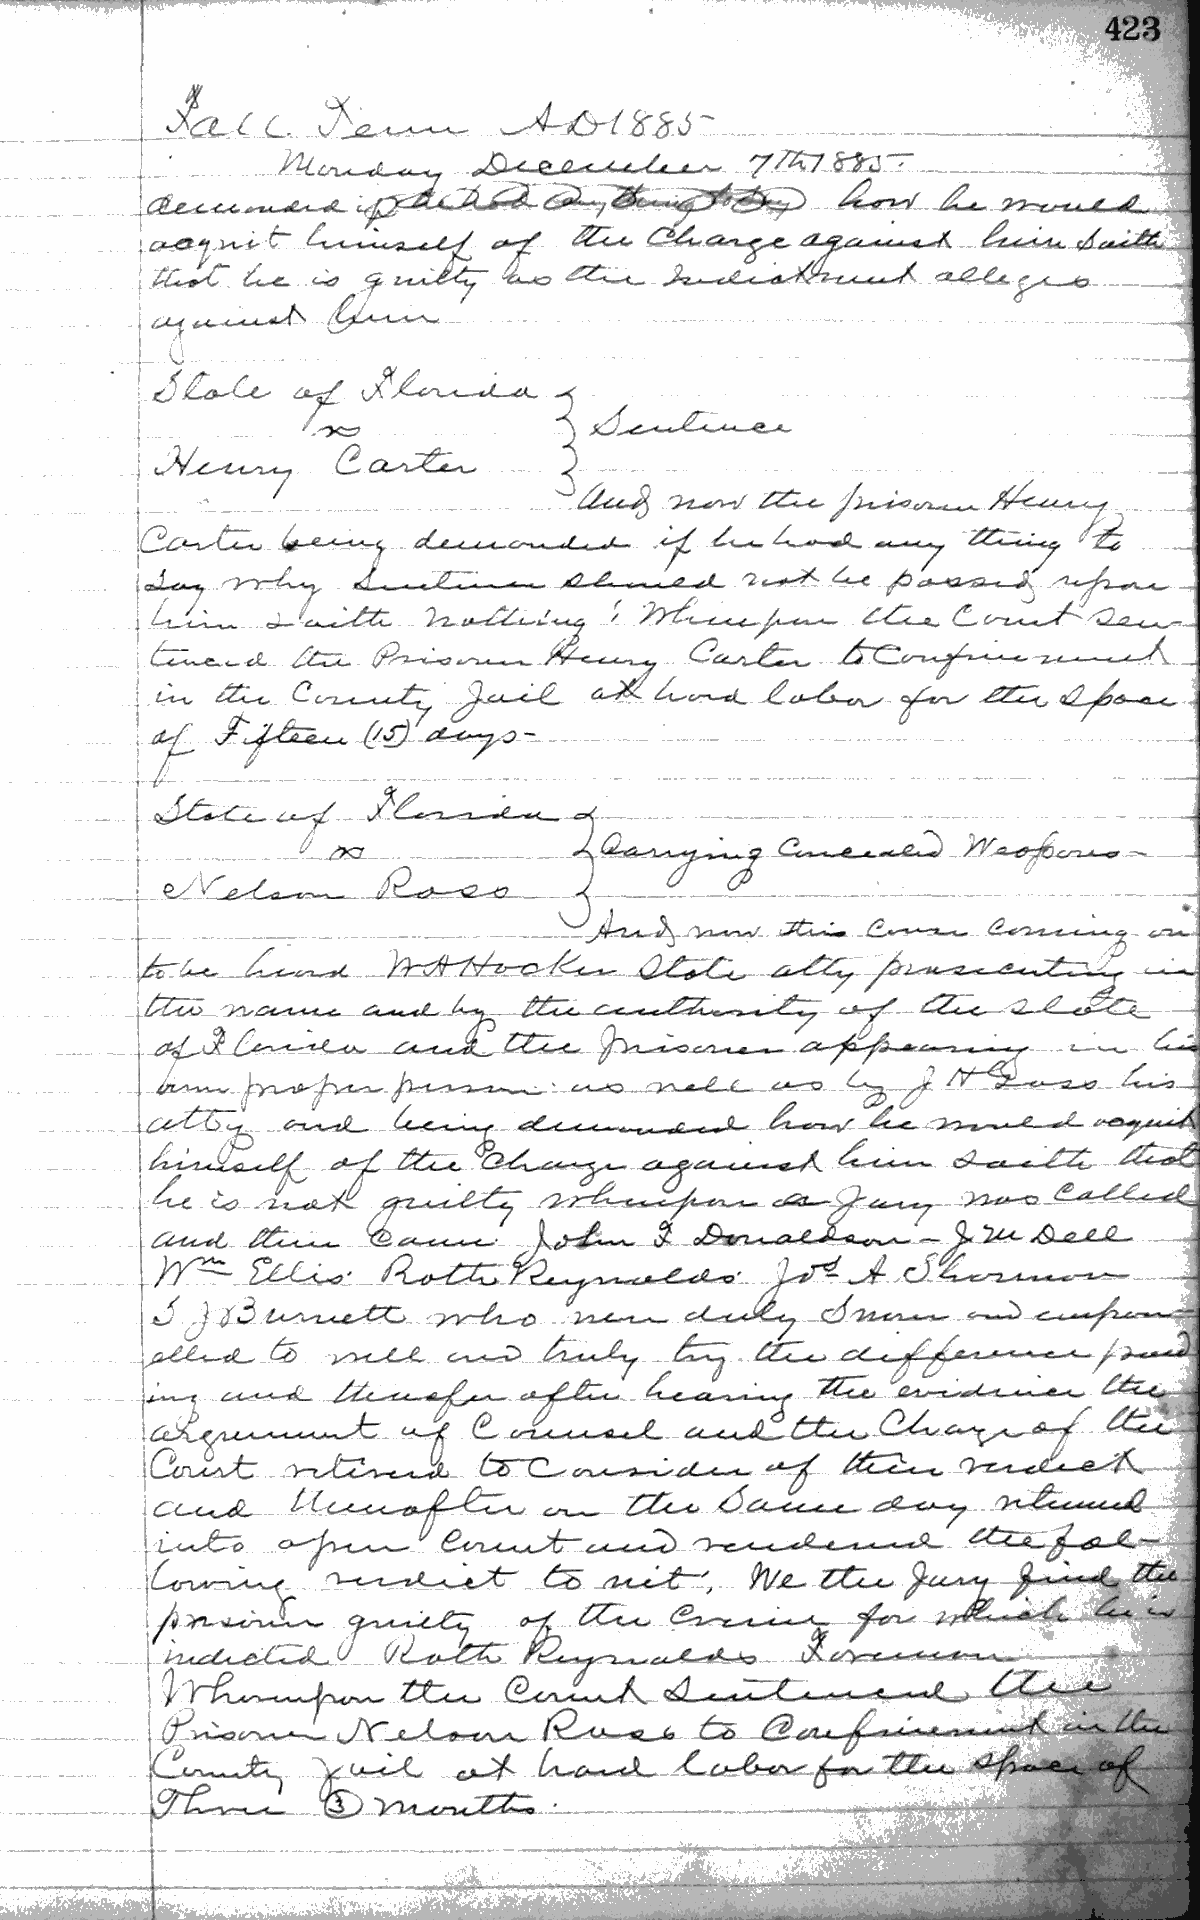 423
Fall Term AD 1885
Monday December 7th 1885.
demanded if he had any thing to say how he would
acquit himself of the Charge against him Saith
that he is guilty as the Indictment alleges
against him
State of Florida
vs
Sentence
Henry Carter
And now the prisoner Henry
Carter being demanded if he had any thing to
Say why Sentence should not be passed upon
him Saith Nothing! Whereupon the Court Sen-
tenced the Prisoner Henry Carter to Confinement
in the County Jail at hard labor for the Space
of Fifteen (15) days-
State of Florida
vs
Carrying Concealed Weapons-
Nelson Ross
And now this Cause Coming on
to be heard W A Hocker State atty prosecuting in
the name and by the authority of the State
of Florida and the Prisoner appearing in his
own proper person as well as by J H his
atty and being demanded how he would acquit
himself of the Charge against him Saith that
he is not guilty Whereupon a Jury was Called
and then Came John F Donaldson - J M Dell
Wm Ellis Roth Reynolds Jos A Sherman
S J Burnett who were duly Sworn and empan-
elled to well and truly try the difference pend
ing and thereafter after hearing the evidence the
argument of Counsel and the Charge of the
Court retired to Consider of their verdict
and thereafter on the Same day returned
into open Court and rendered the fol-
lowing verdict to wit, We the Jury find the
prisoner guilty of the Crime for which he is
indicted Roth Reynolds Foreman
Whereupon the Court Sentenced the
Prisoner Nelson Ross to Confinement in the
County Jail at hard labor for the Space of
Three (3) months.